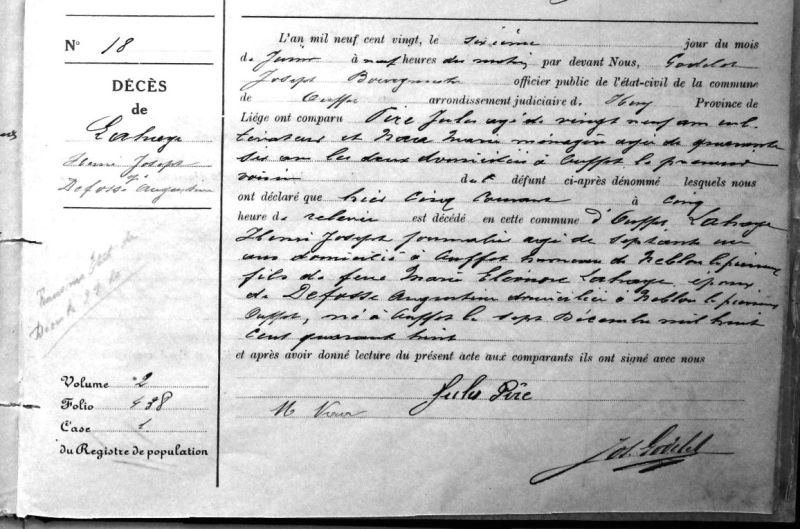 N° 18
DÉCÈS
de
Lahaye
Henri Joseph
&
Defosse Augustine
Volume 2
Folio 438
Case 1.
du Registre de population
L'an mil neuf cent vingt, le sixième jour du mois
de Juin à neuf heures du matin par devant Nous, Godelet
Joseph Bourgmestre officier public de l'état-civil de la commune
de Ouffet arrondissement judiciaire d. Huy Province de
Liége ont comparu Pire Jules agé de vingt neuf ans cul-
tivateur et Marie ménagère agée de quarante
six ans les deux domiciliés à Ouffet le premier
voisin du défunt ci-après dénommé lesquels nous
ont déclaré que hier cinq courant à cinq
heure de relevée est décédé en cette commune d'Ouffet Lahaye
Henri Joseph journalier agé de septante un
ans domicilié à Ouffet hameau de Neblon le pierreux
fils de feue Marie Eléonore Lahaye, époux
de Defosse Augustine domiciliée à Neblon le pierreux
Ouffet, né à Ouffet le sept Décembre mil huit
cent quarant huit
et après avoir donné lecture du présent acte aux comparants ils ont signé avec nous
Jules Pire
M
Jos. Godelet